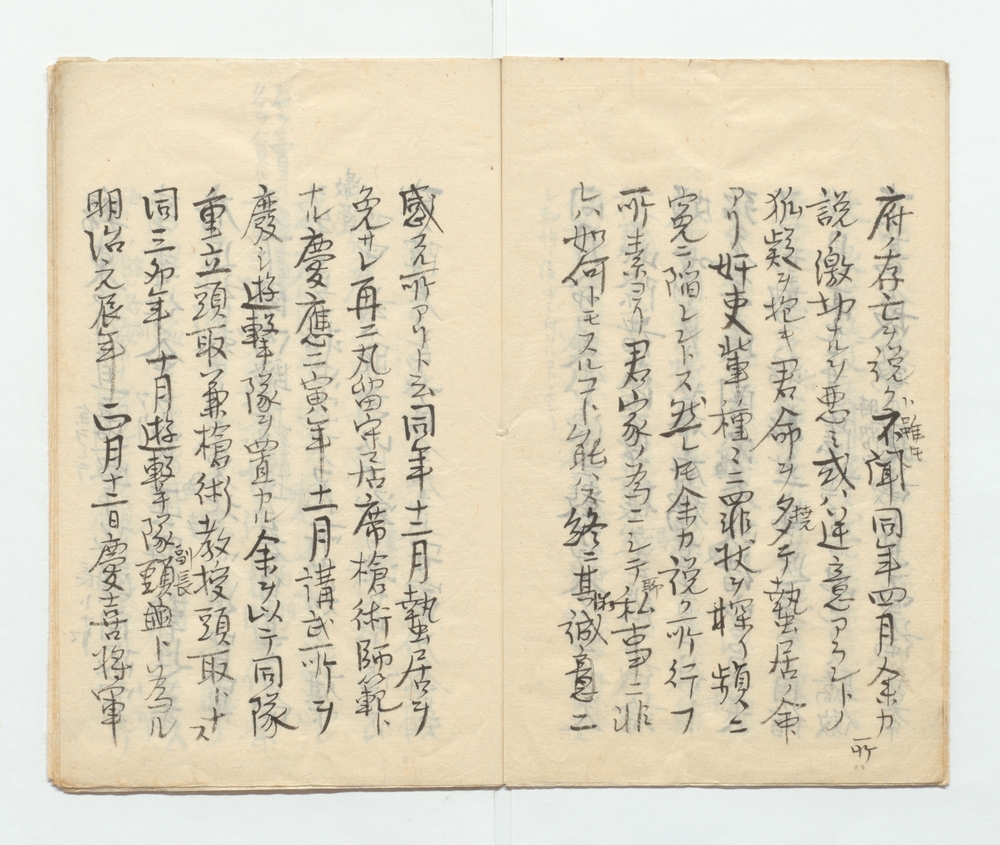 府ノ存亡ヲ説クト雖モ不聞同年四月余カ所
説ノ激切ナルヲ悪ミ或ハ逆意アラントノ
狐疑ヲ抱キ君命ヲ矯メテ蟄居ノ命
アリ奸吏輩種々ニ罪状ヲ探リ頻ニ
寃ニ陥レントス然レ𪜈余カ説ク所行フ
所素ヨリ君家ノ為ニシテ聊私事ニ非
レハ如何トモスルコト能ハス終ニ其誠意ニ
感スル所アリト云同年十二月蟄居ヲ
免サレ再二丸留守居席槍術師範ト
ナル慶應二寅年十一月講武所ヲ
廢シ遊撃隊ヲ置カル余ヲ以テ同隊
重立頭取兼槍術教授頭取トナス
同三卯年十月遊撃隊副長頭並ト為ル
明治元辰年正月十二日慶喜将軍